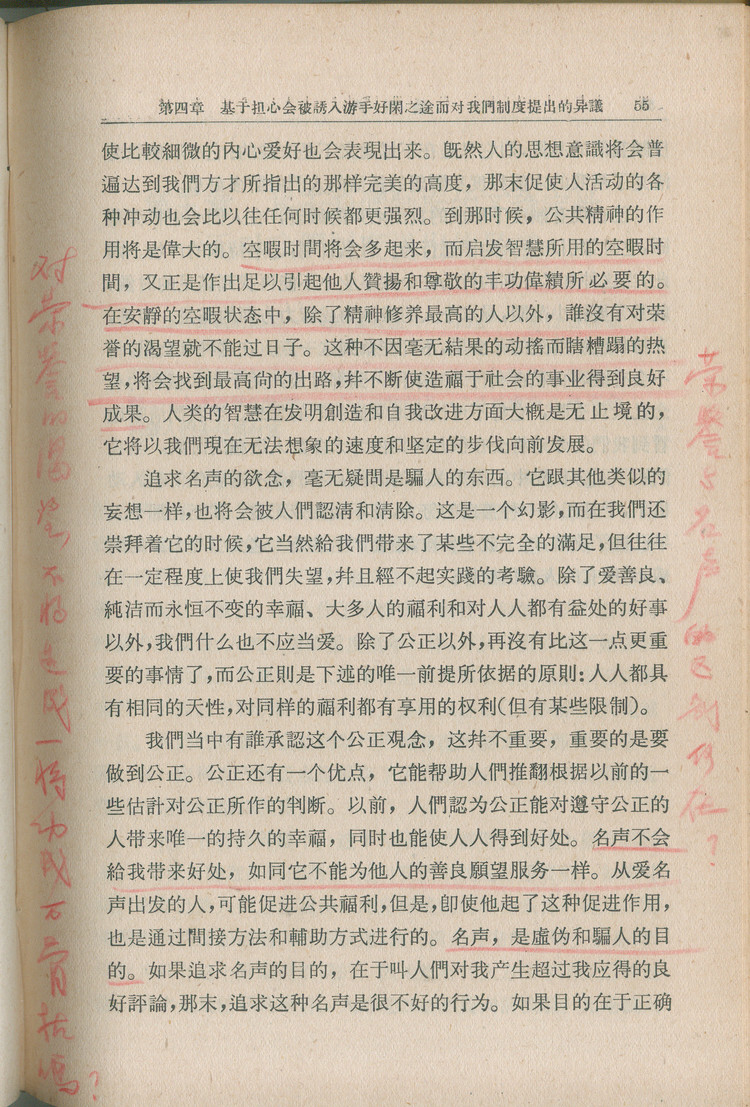 第四章 基于担心会被誘入游手好閑之途而对我們制度提出的异議 55
使比較細微的內心爱好也会表現出来。既然人的思想意識将会普
遍达到我們方才所指出的那样完美的高度，那末促使人活动的各
种冲动也会比以往任何时候都更强烈。到那时候，公共精神的作
用将是偉大的。空暇时間将会多起来，而启发智慧所用的空暇时
間，又正是作出足以引起他人贊揚和尊敬的丰功偉績所必要的。
在安靜的空暇状态中，除了精神修养最高的人以外，誰沒有对荣
誉的渴望就不能过日子。这种不因毫无結果的动搖而瞎糟蹋的热
望，将会找到最高尙的出路，幷不断使造福于社会的事业得到良好
成果。人类的智慧在发明創造和自我改进方面大槪是无止境的，
它将以我們現在无法想象的速度和坚定的步伐向前发展。
追求名声的欲念，毫无疑問是騙人的东西。它跟其他类似的
妄想一样，也将会被人們認淸和淸除。这是一个幻影，而在我們还
崇拜着它的时候，它当然給我們带来了某些不完全的滿足，但往往
在一定程度上使我們失望，幷且經不起实踐的考驗。除了爱善良、
純洁而永恒不变的幸福、大多人的福利和对人人都有益处的好事
以外，我們什么也不应当爱。除了公正以外，再沒有比这一点更重
要的事情了，而公正則是下述的唯一前提所依据的原則：人人都具
有相同的天性，对同样的福利都有享用的权利（但有某些限制）。
我們当中有誰承認这个公正观念，这幷不重要，重要的是要
做到公正。公正还有一个优点，它能帮助人們推翻根据以前的一
些估計对公正所作的判断。以前，人們認为公正能对遵守公正的
人带来唯一的持久的幸福，同时也能使人人得到好处。名声不会
給我带来好处，如同它不能为他人的善良願望服务一样。从爱名
声出发的人，可能促进公共福利，但是，卽使他起了这种促进作用，
也是通过間接方法和輔助方式进行的。名声，是虛伪和騙人的目
的。如果追求名声的目的，在于叫人們对我产生超过我应得的良
好評論，那末，追求这种名声是很不好的行为。如果目的在于正确
对荣誉的渴望，不将造成一将功成万骨枯吗？
荣誉与名声的区别何在？